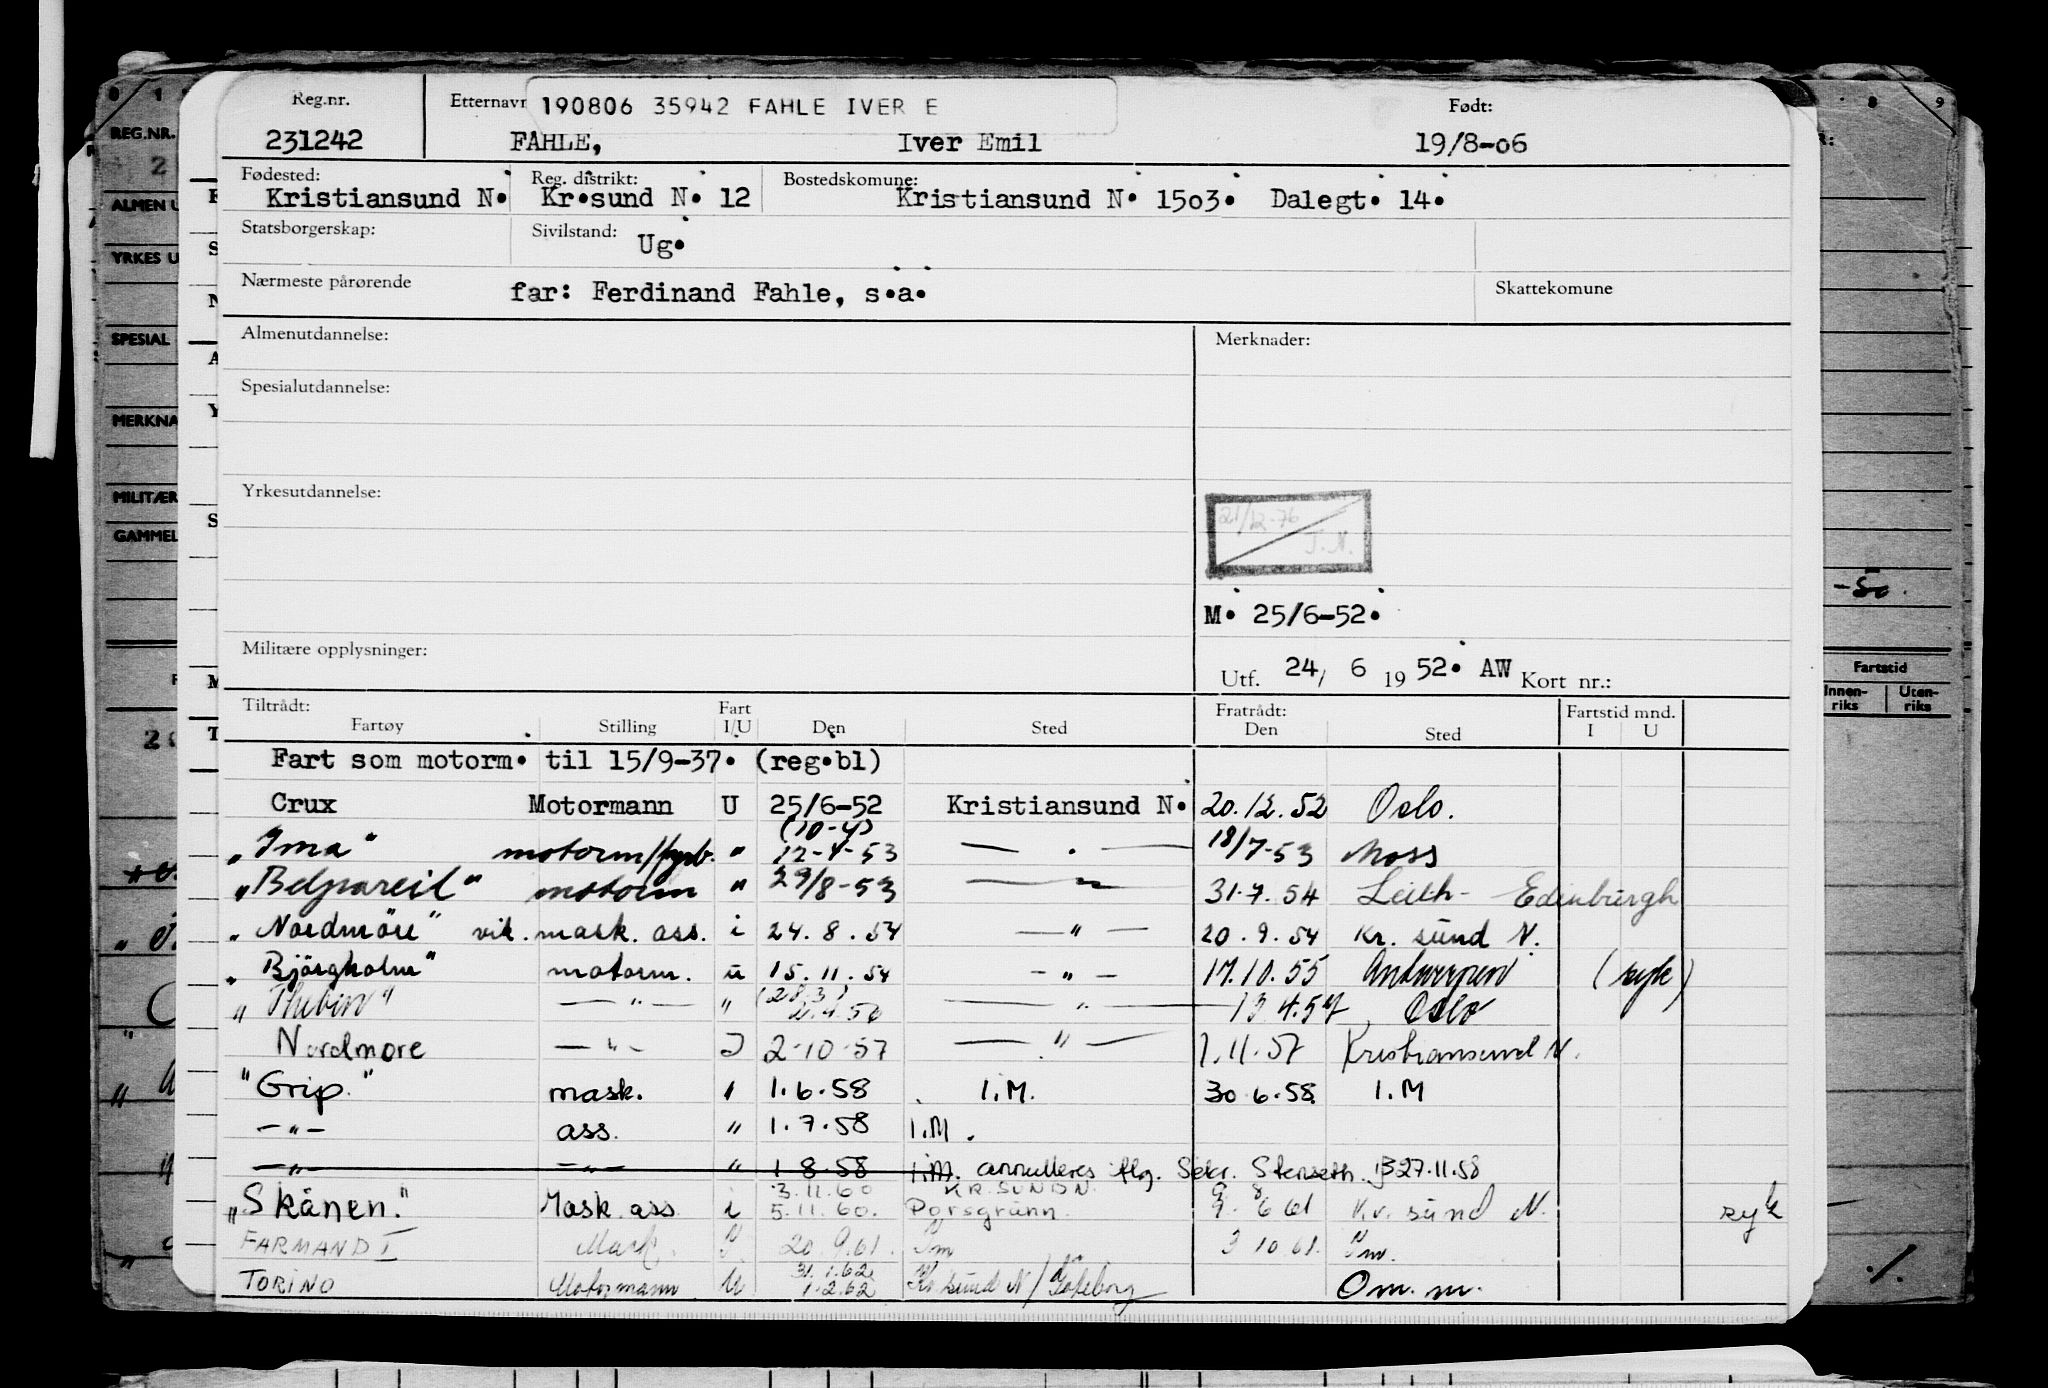 Reg.nr. Etternavn 190806 35942 FAHLE IVER E Født:
231242 FAHLE, Iver Emil 19/8-06
Fødested: Reg. distrikt: Bostedskomune:
Kristiansund N. Kr.sund N. 12 Kristiansund N. 1503. Dalegt. 14.
Statsborgerskap: Sivilstand: Ug.
Nærmeste pårørende far: Ferdinand Fahle, s.a. Skattekomune
Almenutdannelse: Merknader:
Spesialutdannelse:
Yrkesutdannelse:
21/12-76
T.N.
M. 25/6-52.
Militære opplysninger:
Utf. 24/ 6 19 52. AW Kort nr.:
Tiltrådt: Fart Fratrådt: Fartstid mnd.
Fartøy Stilling I/U Den Sted Den Sted I U
Fart som motorm. til 15/9-37. (reg.bl)
Crux Motormann U 25/6-52 Kristiansund N. 20.12.52 Oslo.
(10-4)
"Ima" motorm/fyrb. " 12-4-53 — . — 18/7-53 Moss
"Belpareil" motorm " 29/8-53 — " — 31.7.54 Leith - Edinburgh
"Nordmöre" vik. mask. ass. i 24.8.54 — " — 20.9.54 Kr. sund N.
"Björgholm" motorm. u 15.11.54 - " - 17.10.55 Antwerpen (syk)
(28.3)
— " — " — " — Oslo
Nordmøre — " — I 2-10-57 — " — 1.11.57 Kristiansund N.
"Grip." mask. i 1.6.58 I.M. 30.6.58 I.M
— " — ass. " 1.7.58 I.M.
— " — — " — " 1.8.58 I.M. annulleres flg. Sekr. Stenseth. 27.11.58
3.11.60 KR.SUND N.
"Skånen." Mask. ass. i 5.11.60. Porsgrunn. 9. 6 61 Kr. sund N. syk
FARMAND I Mask. I 20.9.61. Im 3 10.61. Im.
31.1.62
TORINO Motormann U 1.2.62 Kr.sund N / Göteborg Om. m.
REG.NR.
ALMEN U
YRKES U
SPESIAL
MERKNA
MILITÆR
GAMMEL
-50.
Fartstid
Innen-riks Uten-riks